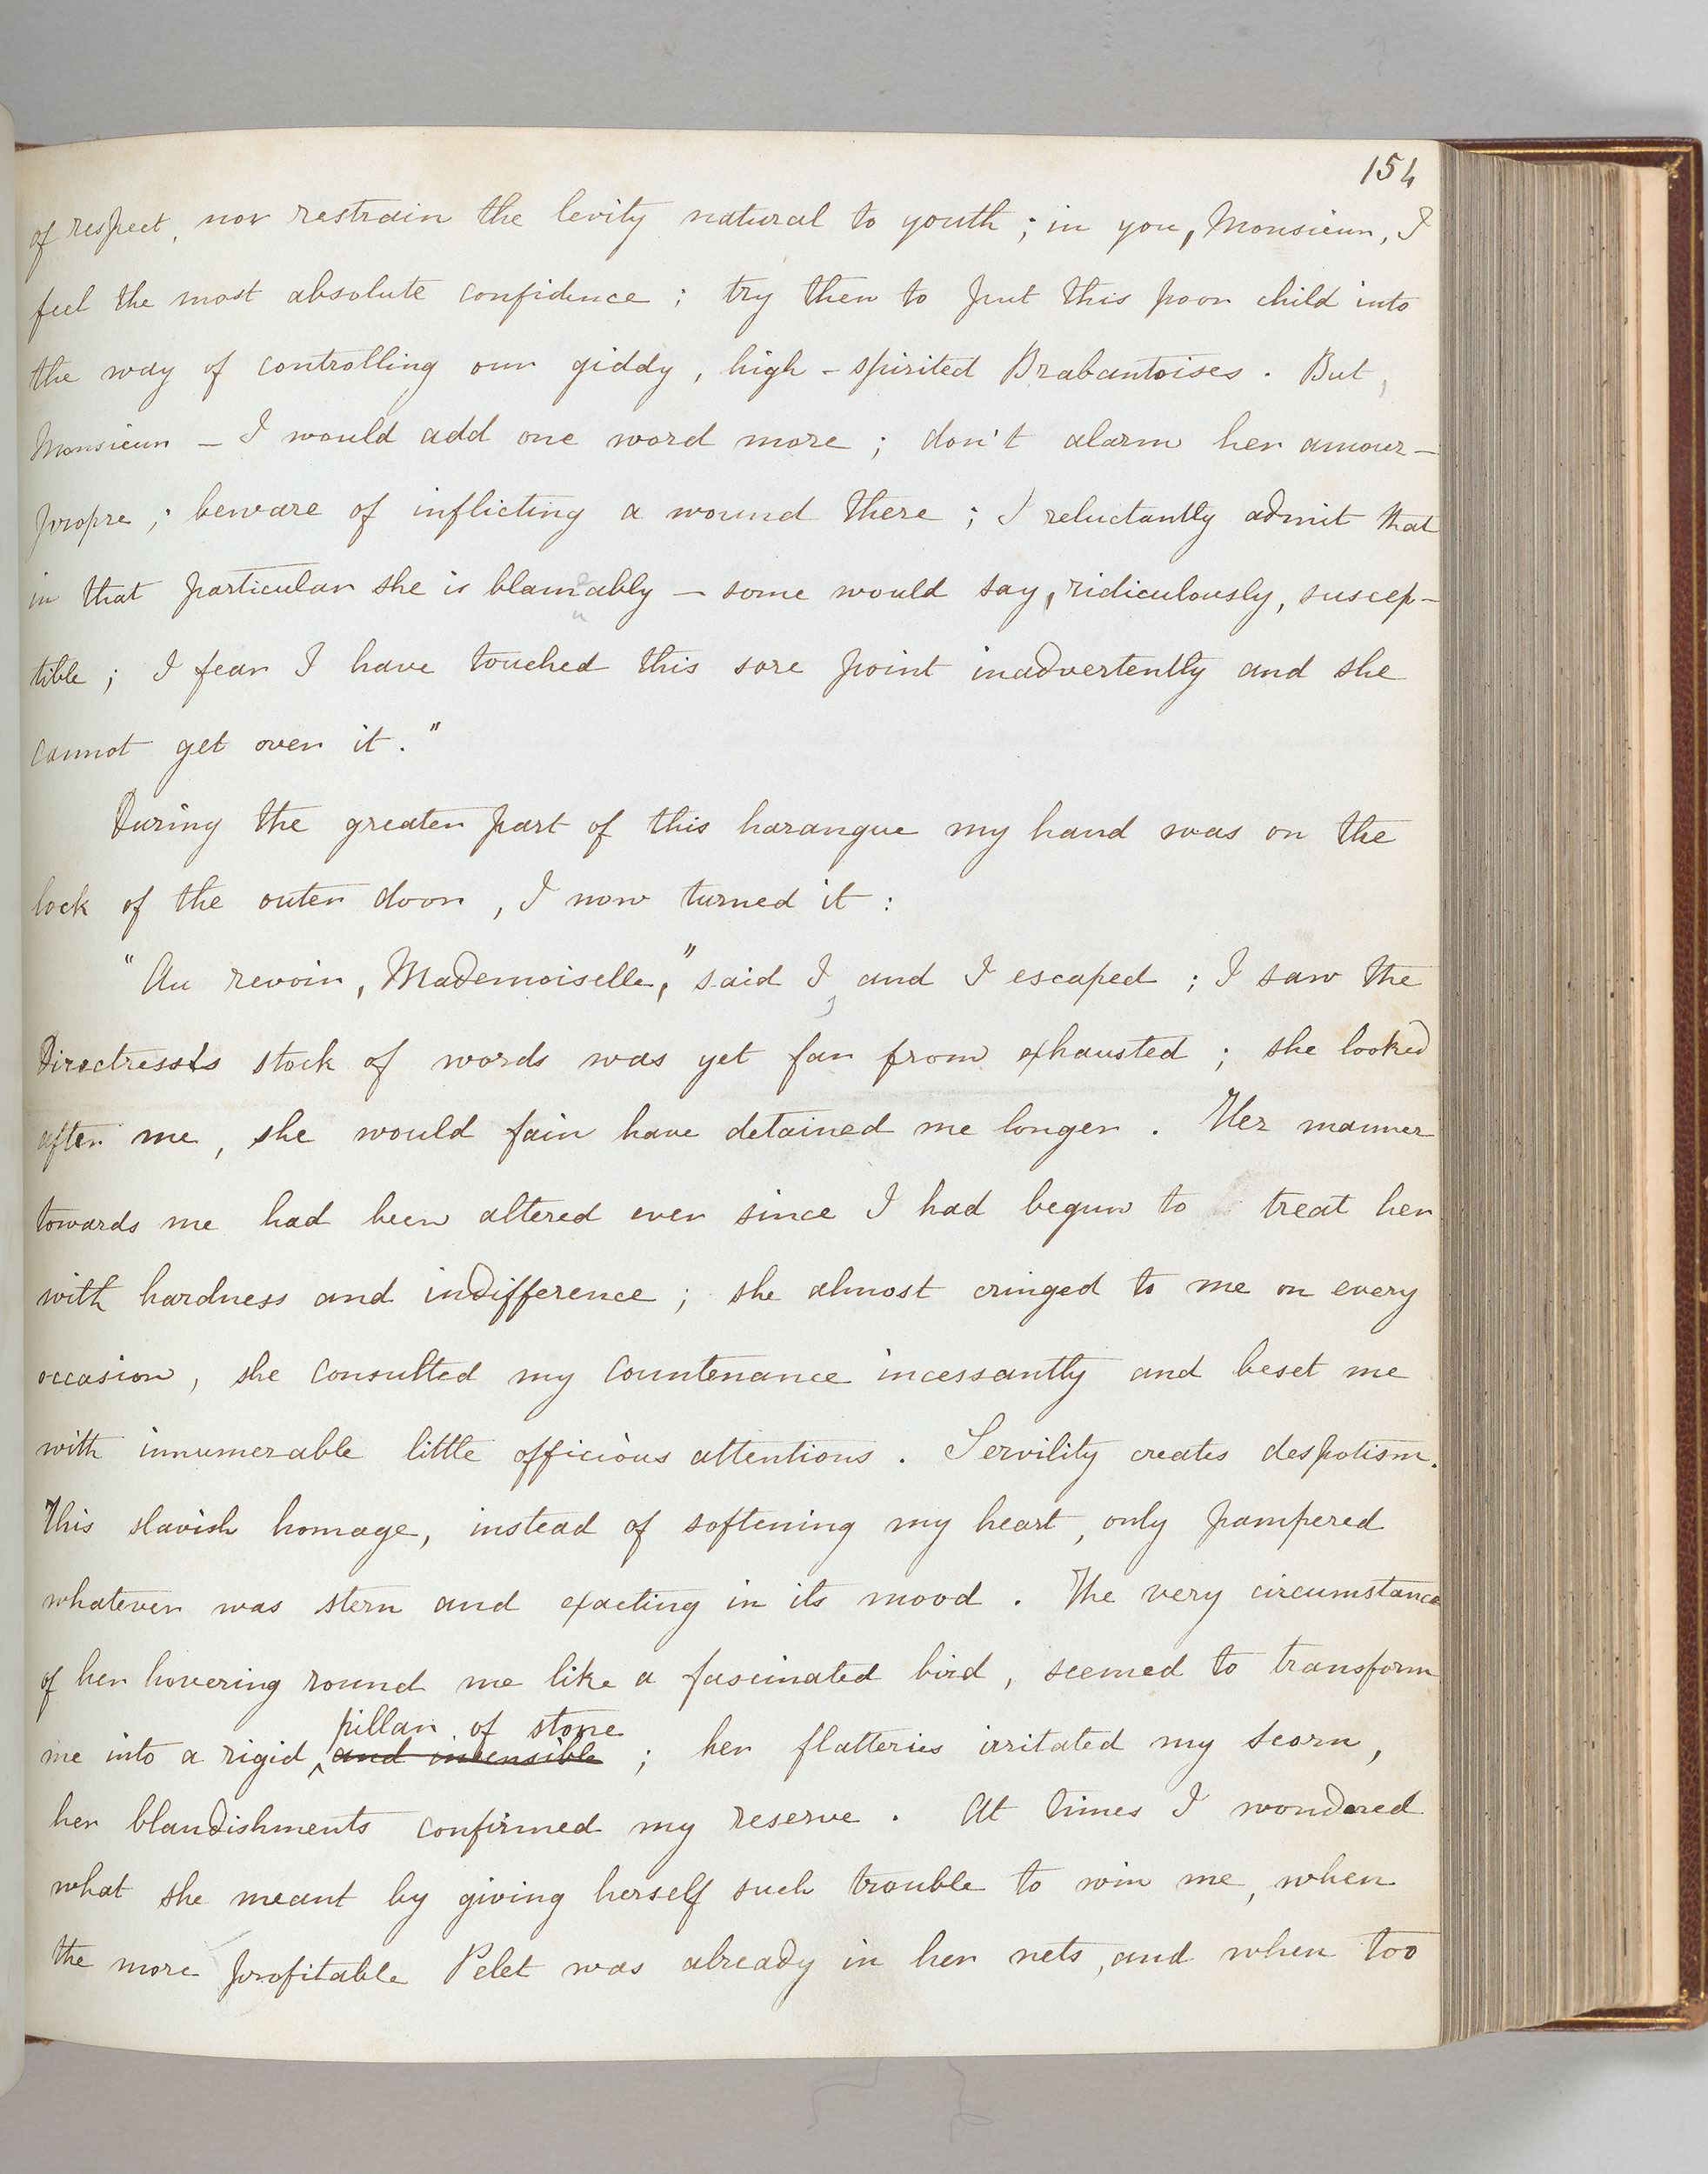 154
of respect, nor restrain the levity natural to youth; in you, Monsieur, I
feel the most absolute confidence; try then to put this poor child into
the way of controlling our giddy, high-spirited Brabantoises. But,
Monsieur — I would add one word more; don't alarm her amour-
propre; beware of inflicting a wound there; I reluctantly admit that
in that particular she is blamably — some would say, ridiculously, suscep-
tible; I fear I have touched this sore point inadvertently and she
cannot get over it."
During the greater part of this harangue my hand was on the
lock of the outer door, I now turned it:
"Au revoir, Mademoiselle," said I, and I escaped; I saw the
Directress's stock of words was yet far from exhausted; she looked
after me, she would fain have detained me longer. Her manner
towards me had been altered ever since I had begun to treat her
with hardness and indifference; she almost cringed to me on every
occasion, she consulted my countenance incessantly and beset me
with innumerable little officious attentions. Servility creates despotism.
This slavish homage, instead of softening my heart, only pampered
whatever was stern and exacting in its mood. The very circumstance
of her hovering round me like a fascinated bird, seemed to transform
pillar of stone
me into a rigid and insensible; her flatteries irritated my scorn,
her blandishments confirmed my reserve. At times I wondered
what she meant by giving herself such trouble to win me, when
the more profitable Pelet was already in her nets, and when too